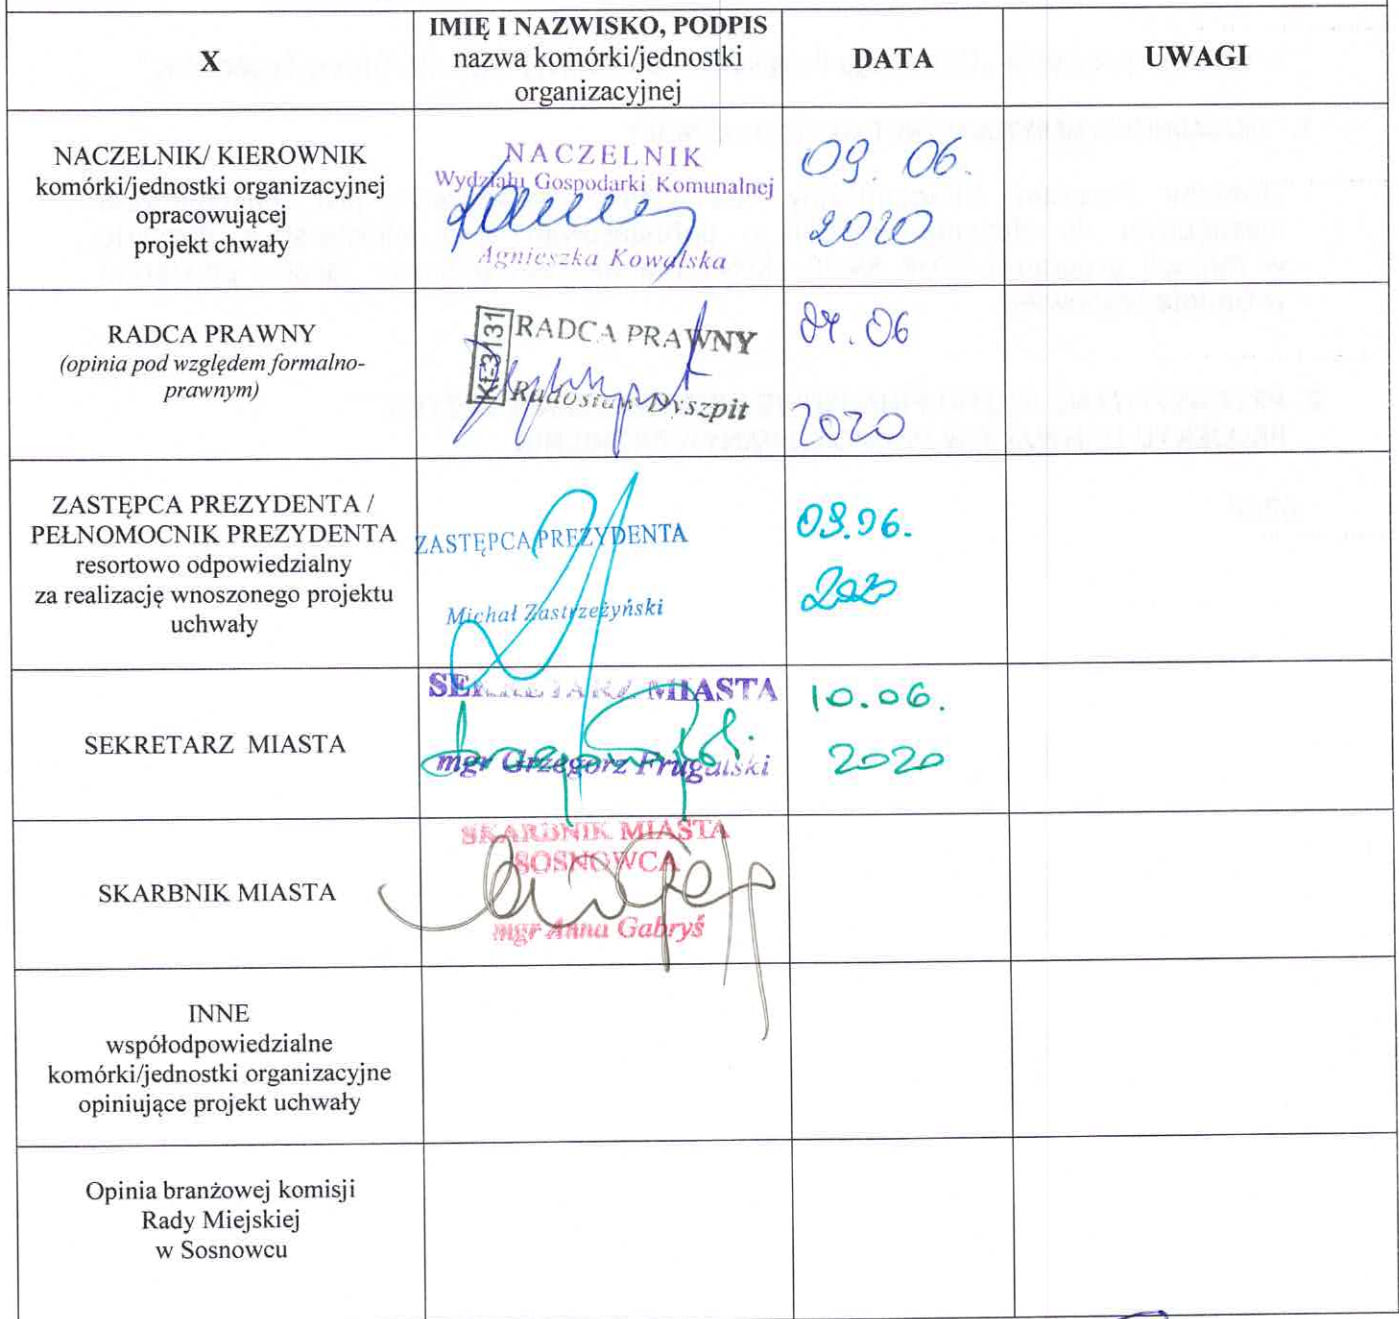 X
IMIĘ I NAZWISKO, PODPIS
nazwa komórki/jednostki
organizacyjnej
DATA
UWAGI
NACZELNIK/ KIEROWNIK
komórki/jednostki organizacyjnej
opracowującej
projekt chwały
NACZELNIK
Wydziału Gospodarki Komunalnej
Agnieszka Kowalska
09. 06.
2020
RADCA PRAWNY
(opinia pod względem formalno-
prawnym)
RADCA PRAWNY
Radosław Dyszpit
06
2020
ZASTĘPCA PREZYDENTA /
PEŁNOMOCNIK PREZYDENTA
resortowo odpowiedzialny
za realizację wnoszonego projektu
uchwały
ZASTĘPCA PREZYDENTA
Michał Zastrzeżyński
09.06.
2020
SEKRETARZ MIASTA
SEKRETARZ MIASTA
mgr Grzegorz Frugalski
10.06.
2020
SKARBNIK MIASTA
SKARBNIK MIASTA
SOSNOWCA
mgr Anna Gabryś
INNE
współodpowiedzialne
komórki/jednostki organizacyjne
opiniujące projekt uchwały
Opinia branżowej komisji
Rady Miejskiej
w Sosnowcu